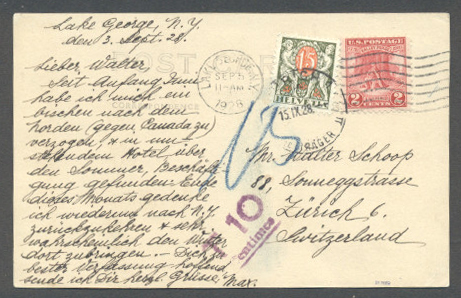 Lake George, N.Y.
den 3. Sept. 28.
Lieber Walter,
Seit Anfang Juni
habe ich mich ein
bischen nach dem
Norden (gegen Canada zu
verzogen, & in um
stehendem Hotel über
den Sommer, Beschäf
tigung gefunden. Ende
dieses Monats gedenke
ich wiederum nach N.Y.
zurückzukehren & sehr
wahrscheinlich den Winter
dort zubringen. — Dich in
bester Verfassung hoffend
sende ich Dir herzl. Grüsse, Max.
POST CARD
CORRESPONDENCE
LAKE GEORGE N.Y.
SEP 5
11-AM
1928
15
HELVETIA
15.IX.28
BRIEFTRÄGER
U.S. POSTAGE
2 CENTS 2
15
Mr. Walter Schoop
88, Sonneggstrasse
Zürich 6.
Switzerland
T 10
centimes